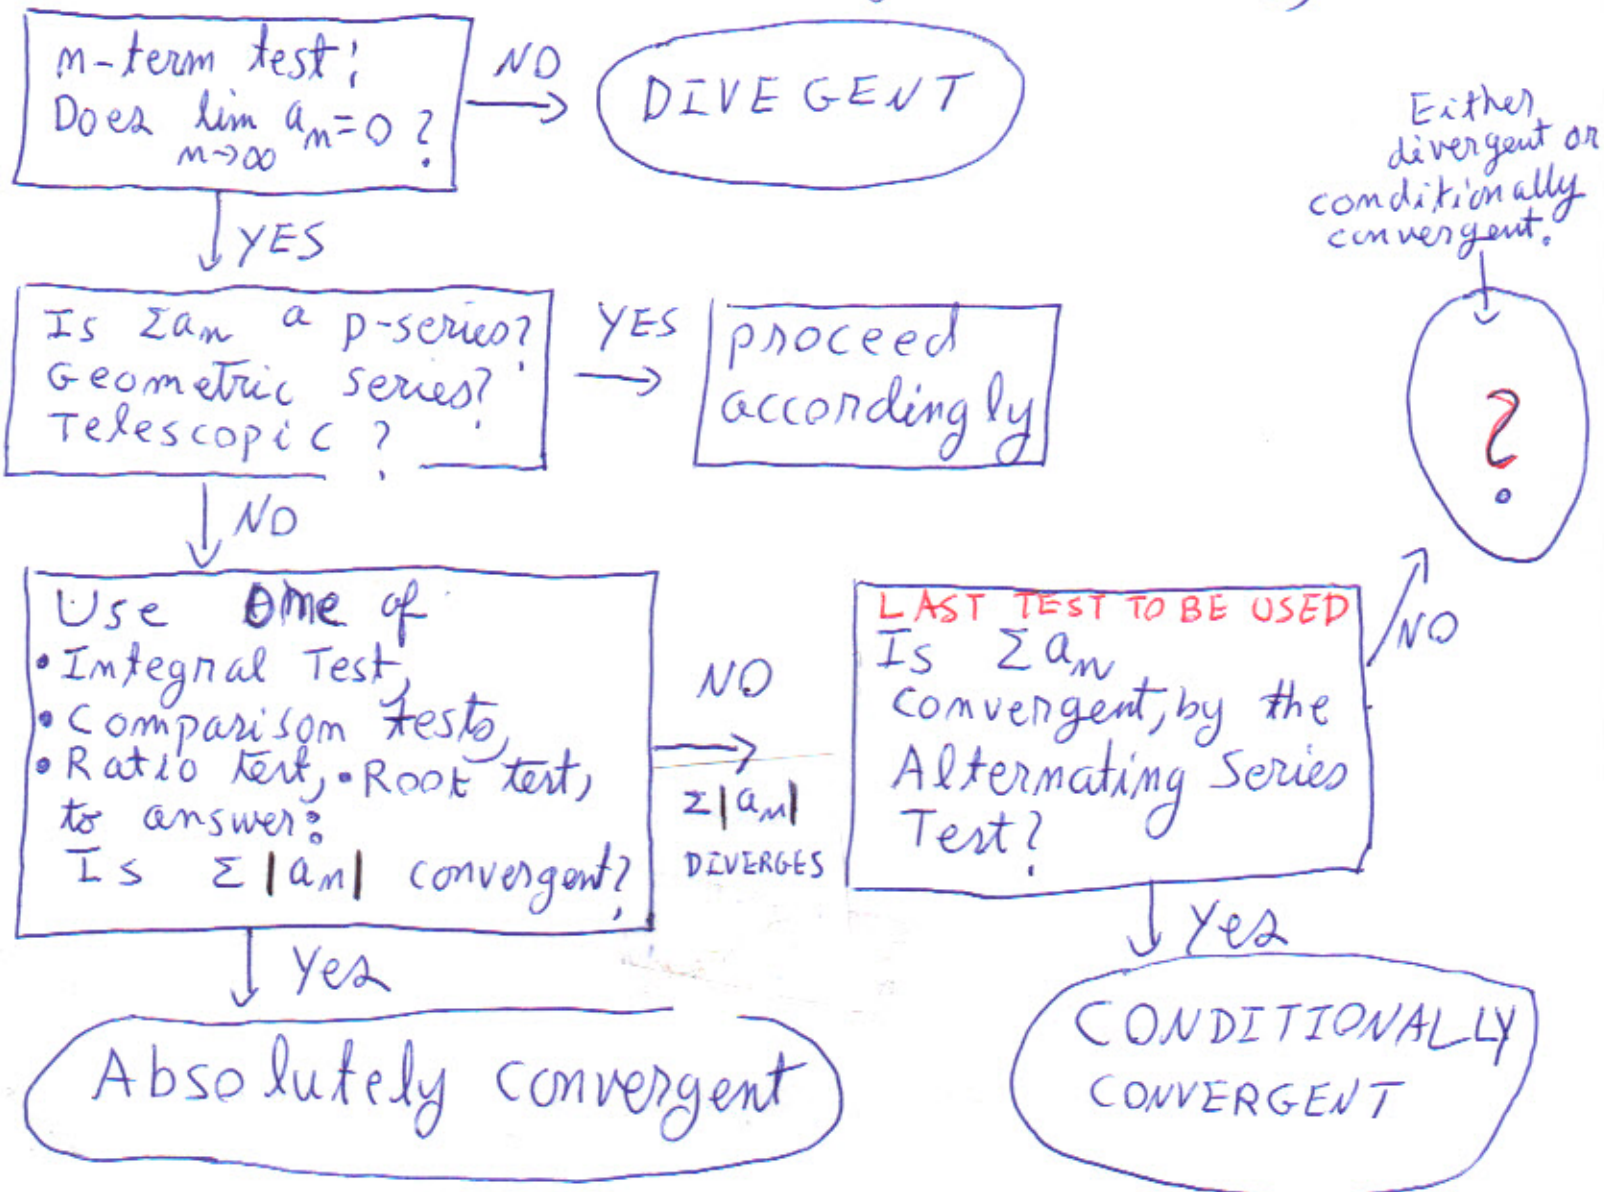 n-term test:
Does lim aₙ=0 ?
n→∞
NO
DIVEGENT
YES
Is Σaₙ a p-series?
Geometric series?
Telescopic ?
YES
proceed
accordingly
NO
Use One of
• Integral Test,
• Comparison tests,
• Ratio test, • Root test,
to answer:
Is Σ|aₙ| convergent?
NO
Σ|aₙ|
DIVERGES
Yes
Absolutely convergent
LAST TEST TO BE USED
Is Σaₙ
convergent, by the
Alternating Series
Test?
NO
Either
divergent or
conditionally
convergent.
?
Yes
CONDITIONALLY
CONVERGENT